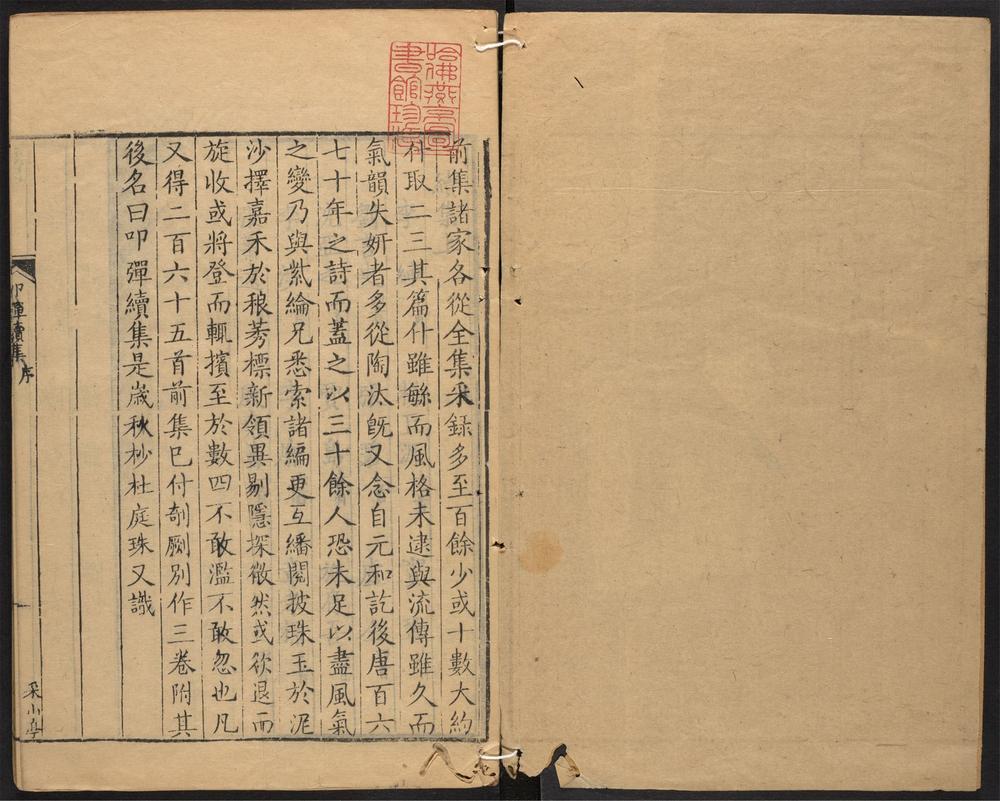 哈佛燕京圖
書館珍藏
前集諸家各從全集采録多至百餘少或十數大約
什取二三其篇什雖鮴而風格未逮與流傳雖久而
氣韻失妍者多從陶汰旣又念自元和訖後唐百六
七十年之詩而蓋之以三十餘人恐未足以盡風氣
之變乃與紫綸兄悉索諸編更互繙閱披珠玉於泥
沙擇嘉禾於稂莠標新領異剔隱探微然或欲退而
旋收或將登而輒擯至於數四不敢濫不敢忽也凡
又得二百六十五首前集已付剞劂別作三卷附其
後名曰叩彈續集是歲秋杪杜庭珠又識
叩彈續集
序
采山亭